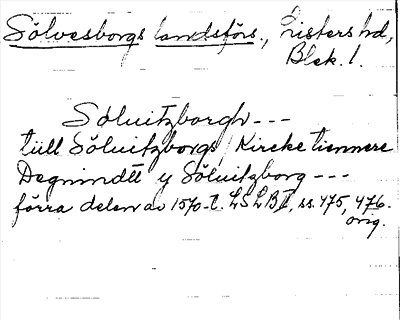 Sölvesborgs landsförs., Listers hd,
Blek. l.
Søluitzborgh ---
tiill Søluitzborgs Kircke tiennere
Degnindtt y Søluitzborg ---
förra delen av 1570-t. LSLBI, ss. 475, 476.
orig.